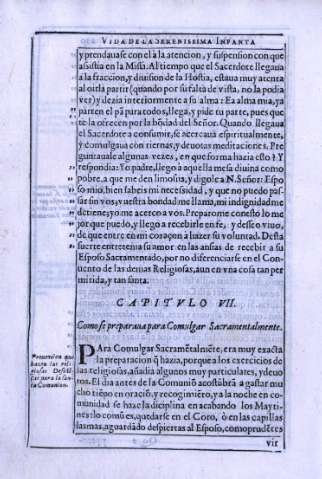 VIDA DE LA SERENISSIMA INFANTA
y prendauase con el à la atencion, y suspension con que
asistia en la Missa. Al tiempo que el Sacerdote llegaua
a la fraccion, y diuision de la Hostia, estaua muy atenta
al oirla partir (quando por su falta de vista, no la podia
ver) y dezia interiormente a su alma: Ea alma mia, ya
parten el pã para todos, llega, y pide tu parte, pues que
te la ofrecen por la bõdad del Señor. Quando llegaua
el Sacerdote a consumir, se acercaua espiritualmente,
y comulgaua con tiernas, y deuotas meditaciones. Pre
guntauale algunas vezes, en que forma hazia esto? Y
respondia: Yo padre, llego a aquella mesa diuina como
pobre, a que me den limosna, y digole a N. Señor: Espo
so mio, bien sabeis mi necessidad, y que no puedo pas-
sar sin vos, vuestra bondad me llama, mi indignidad me
detiene, yo me acerco a vos. Preparome con esto lo me
jor que puedo, y llego a recebirle en fe, y desseo viuo,
de que entre en mi coraçon a hazer su voluntad. Desta
suerte entretenia su amor en las ansias de recebir a su
Esposo Sacramentado, por no diferenciarse en el Con-
uento de las demas Religiosas, aun en vna cosa tan per
mitida, y tan santa.
CAPITVLO VII.
Como se preparaua para Comulgar Sacramentalmente.
PAra Comulgar Sacramẽtalmẽte, era muy exacta
la preparacion q̃ hazia, porque a los exercicios de
las religiosas, añadia algunos muy particulares, y deuo
tos. El dia antes de la Comuniõ acostũbraua a gastar mu
cho tiẽpo en oraciõ, y recogimiẽto, ya la noche en co-
munidad se haze la diciplina en acabando los Mayti-
nes: lo comũ es, quedarse en el Coro, ò en las capillas
las mas, aguardãdo despiertas al Esposo, como prudẽtes
vir
Preparacion que
hazen las reli-
giosas Descal-
ças para la san-
ta Comunion.